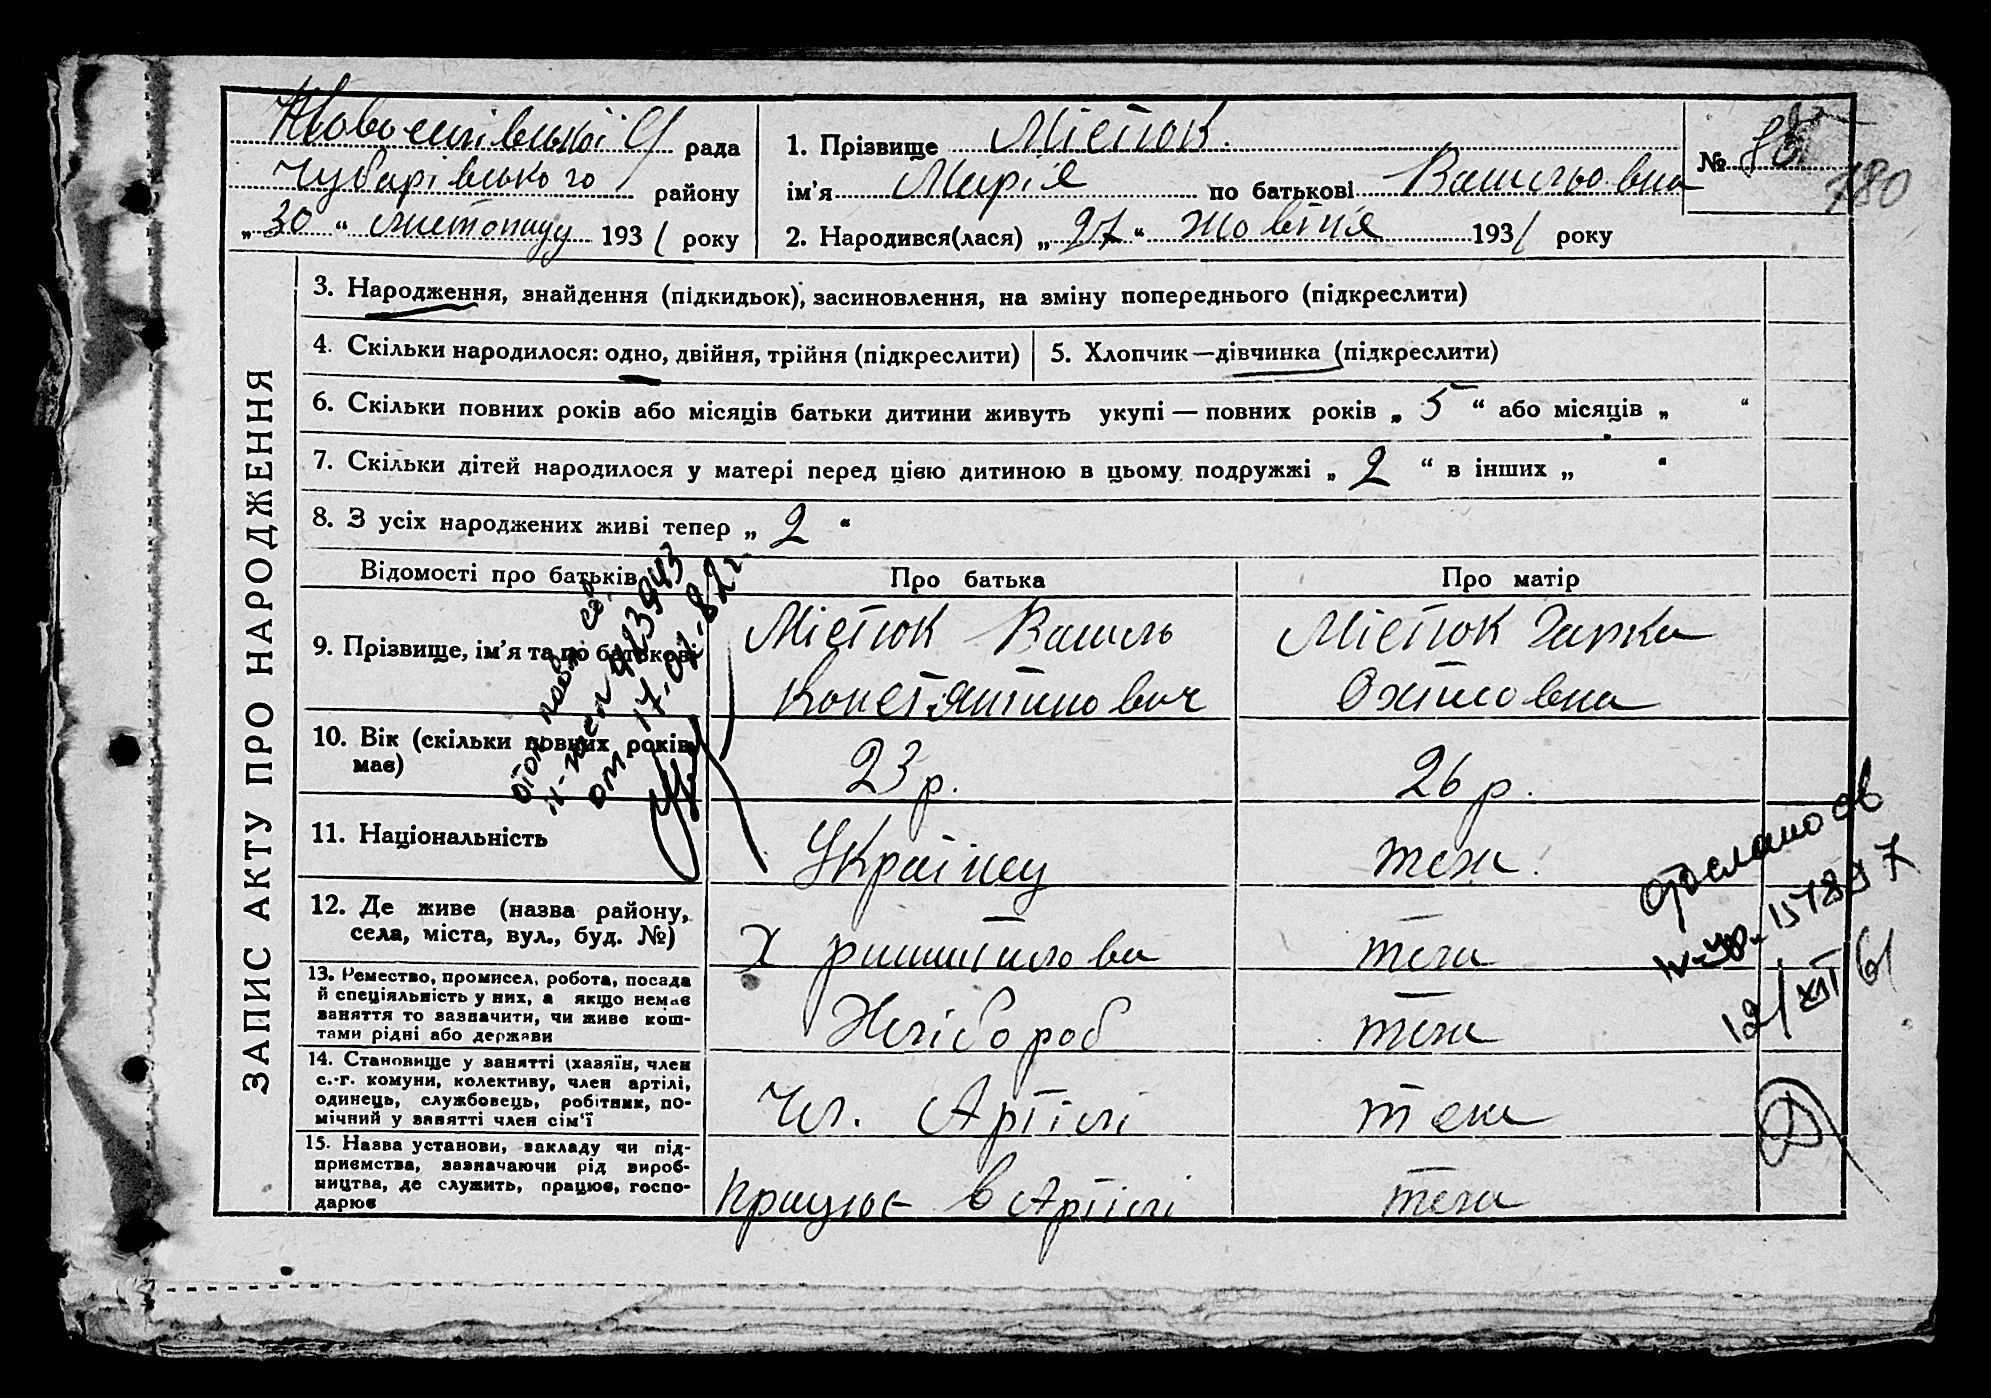 Новоселівської С/ рада
Чубарівського району
„ 30 “ листопаду 1931 року
1. Прізвище Містюк.
ім'я Марія по батькові Васильовна
2. Народився(лася) „ 27 “ жовтня 1931 року
№
780
ЗАПИС АКТУ ПРО НАРОДЖЕННЯ
3. Народження, знайдення (підкидьок), засиновлення, на зміну попереднього (підкреслити)
4. Скільки народилося: одно, двійня, трійня (підкреслити)
5. Хлопчик—дівчинка (підкреслити)
6. Скільки повних років або місяців батьки дитини живуть укупі — повних років „ 5 “ або місяців „ “
7. Скільки дітей народилося у матері перед цією дитиною в цьому подружжі „ 2 “ в інших „ “
8. З усіх народжених живі тепер „ 2 “
Відомості про батьків
Про батька
Про матір
9. Прізвище, ім'я та по батькові
Містюк Василь
Константинович
Містюк
10. Вік (скільки повних років
має)
23 р.
26 р.
11. Національність
Українец
теж.
12. Де живе (назва району,
села, міста, вул., буд. №)
Х
теж
13. Ремество, промисел, робота, посада
й спеціяльність у них, а якщо немає
заняття то зазначити, чи живе кош-
тами рідні або держави
Хлібороб
теж
14. Становище у занятті (хазяїн, член
с.-г. комуни, колективу, член артілі,
одинець, службовець, робітник, по-
мічний у занятті член сім'ї
Чл. Артілі
теж
15. Назва установи, закладу чи під-
приємства, зазначаючи рід вироб-
ництва, де служить, працює, госпо-
дарює
Працює в Артілі
теж
423943
от 17.02.82г.
12/XII 61